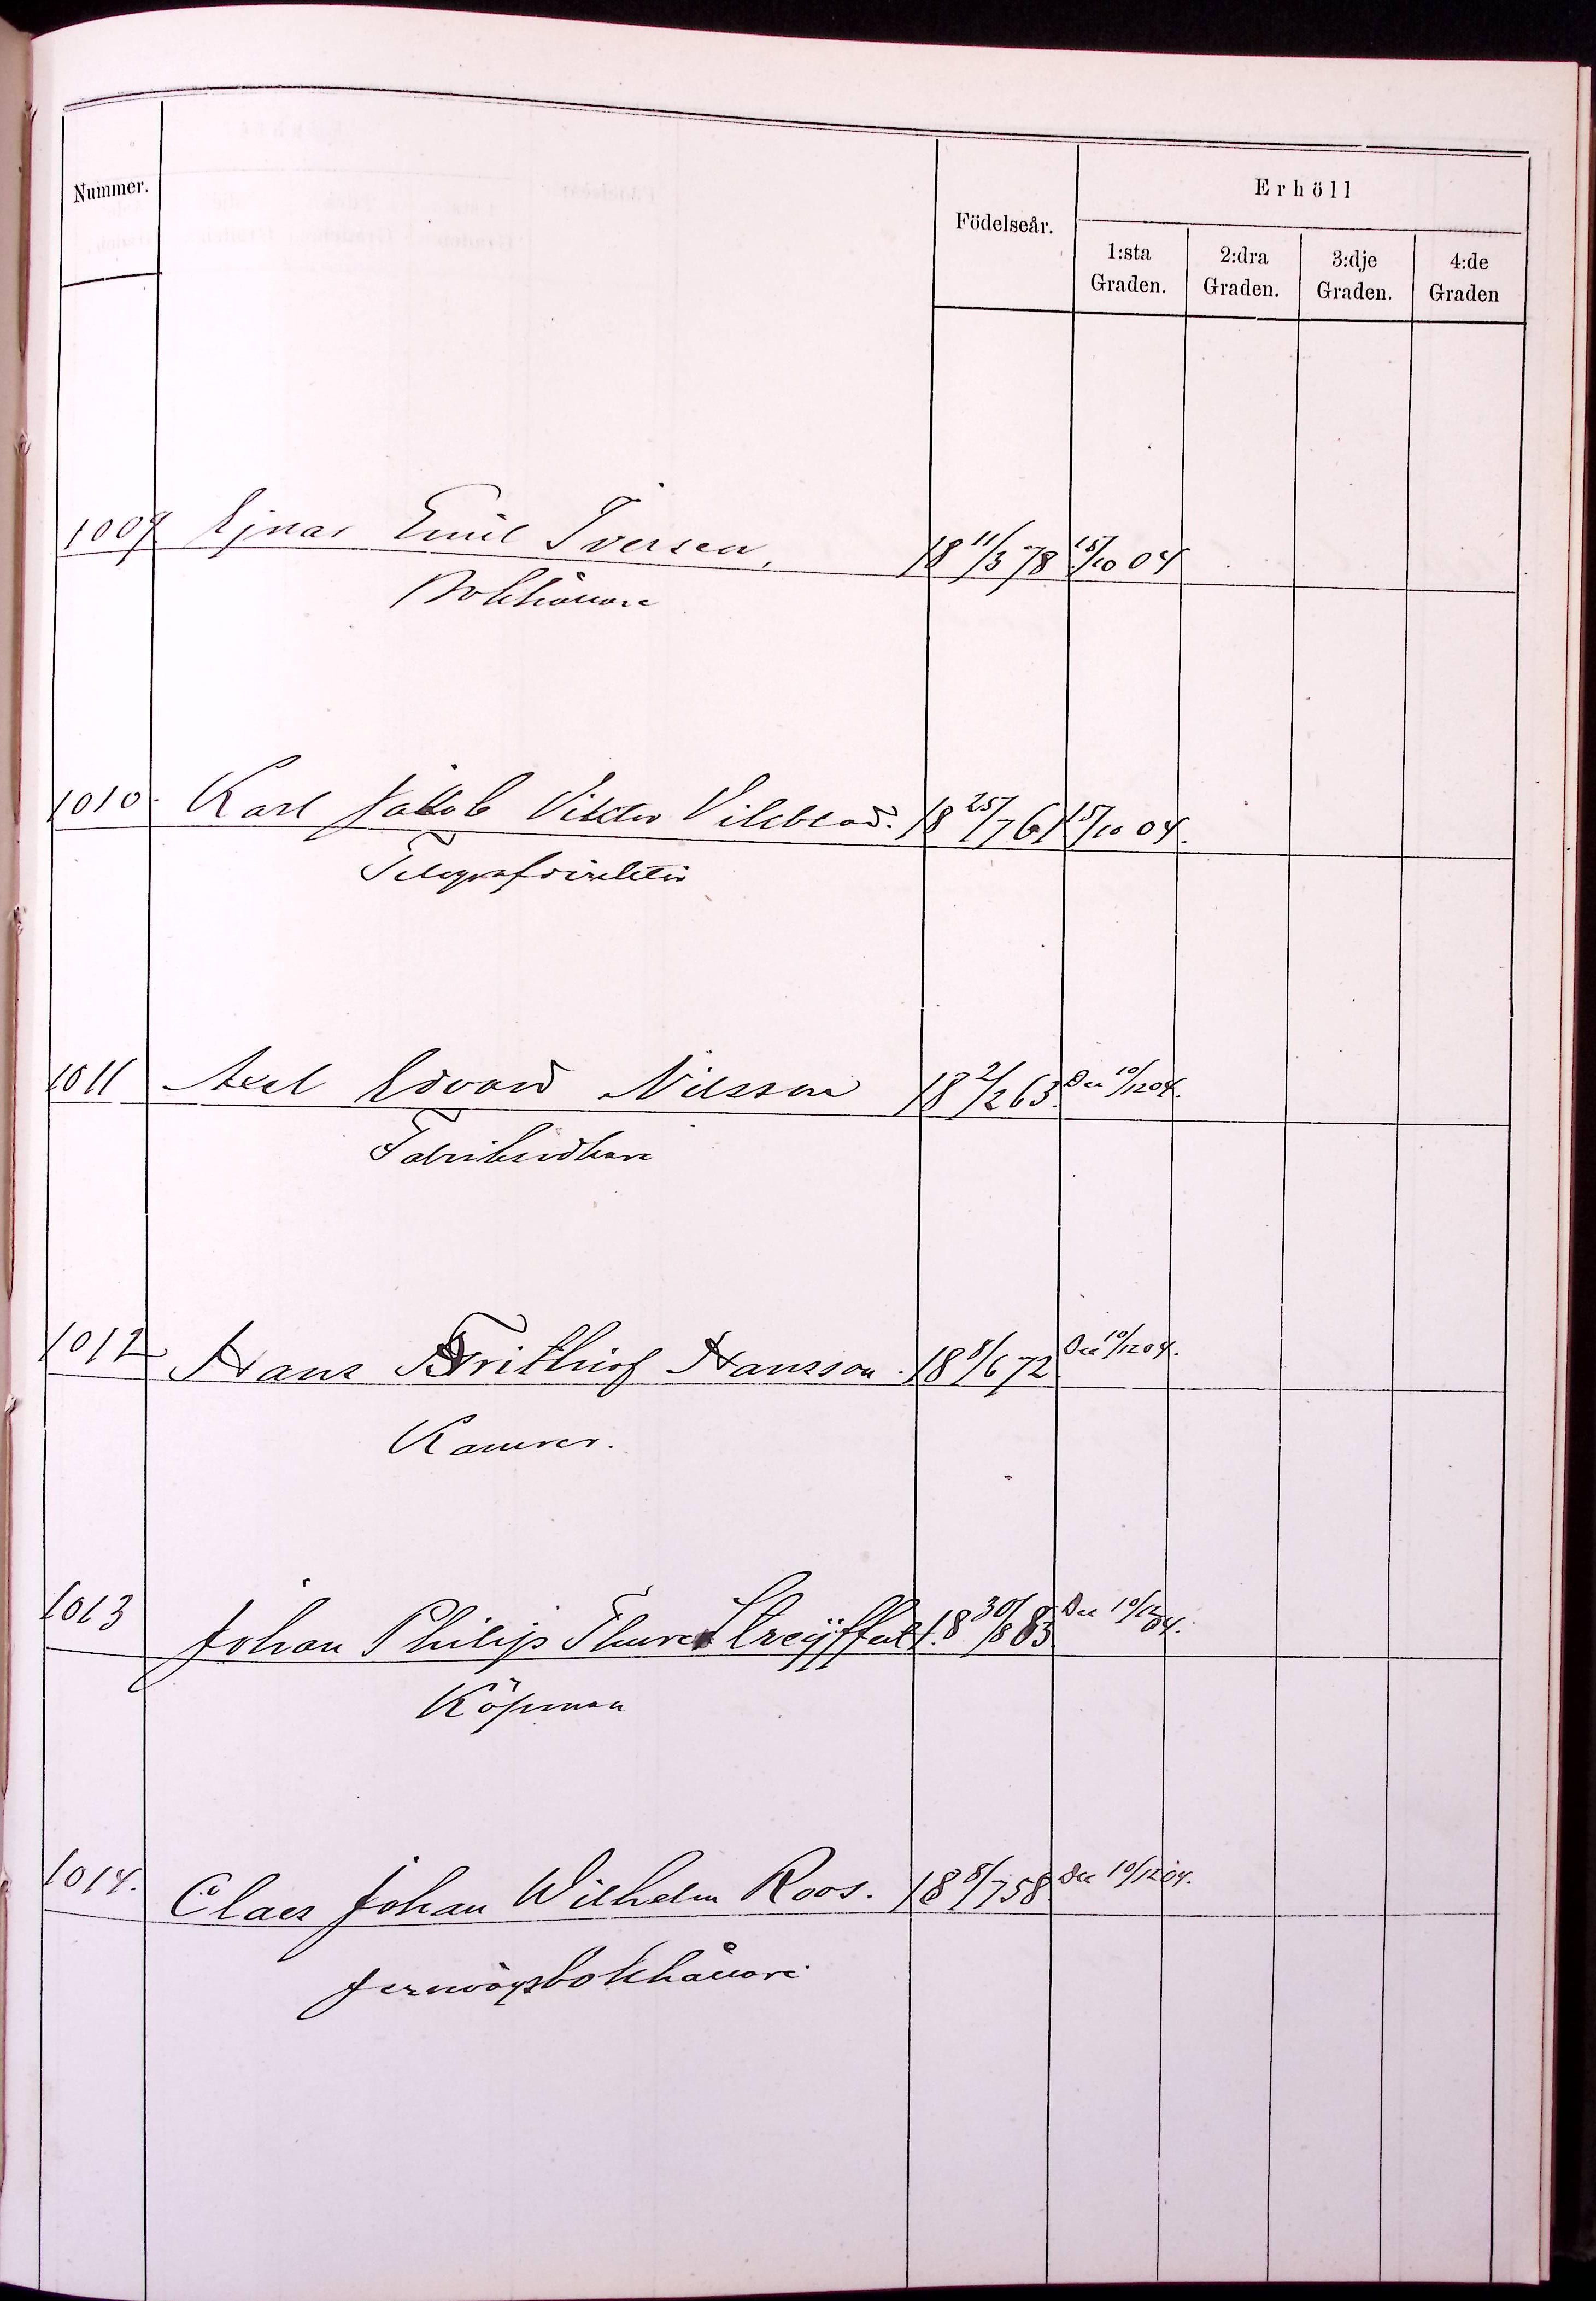 Nummer.
Födelseår.
Erhöll
1:sta Graden.
2:dra Graden.
3:dje Graden.
4:de Graden
1009 Ejnar Emil Iversen, 18 11/3 78 15/10 04
Bokhållare
1010. Karl Jakob Viktor Vildblad. 18 25/7 61 15/10 04.
Telegrafdirektör
1011 Axel Edvard Nilsson 18 2/2 63. Den 10/12 04.
Fabriksidkare
1012 Hans Frithiof Hansson. 18 8/6 72 Den 10/12 04.
Kamrer.
1013 Johan Philip Thure Streijffert. 18 30/8 63 Den 10/12 04.
Köpman
1014. Claes Johan Wilhelm Roos. 18 8/7 58 Den 10/12 04.
Jernvägsbokhållare